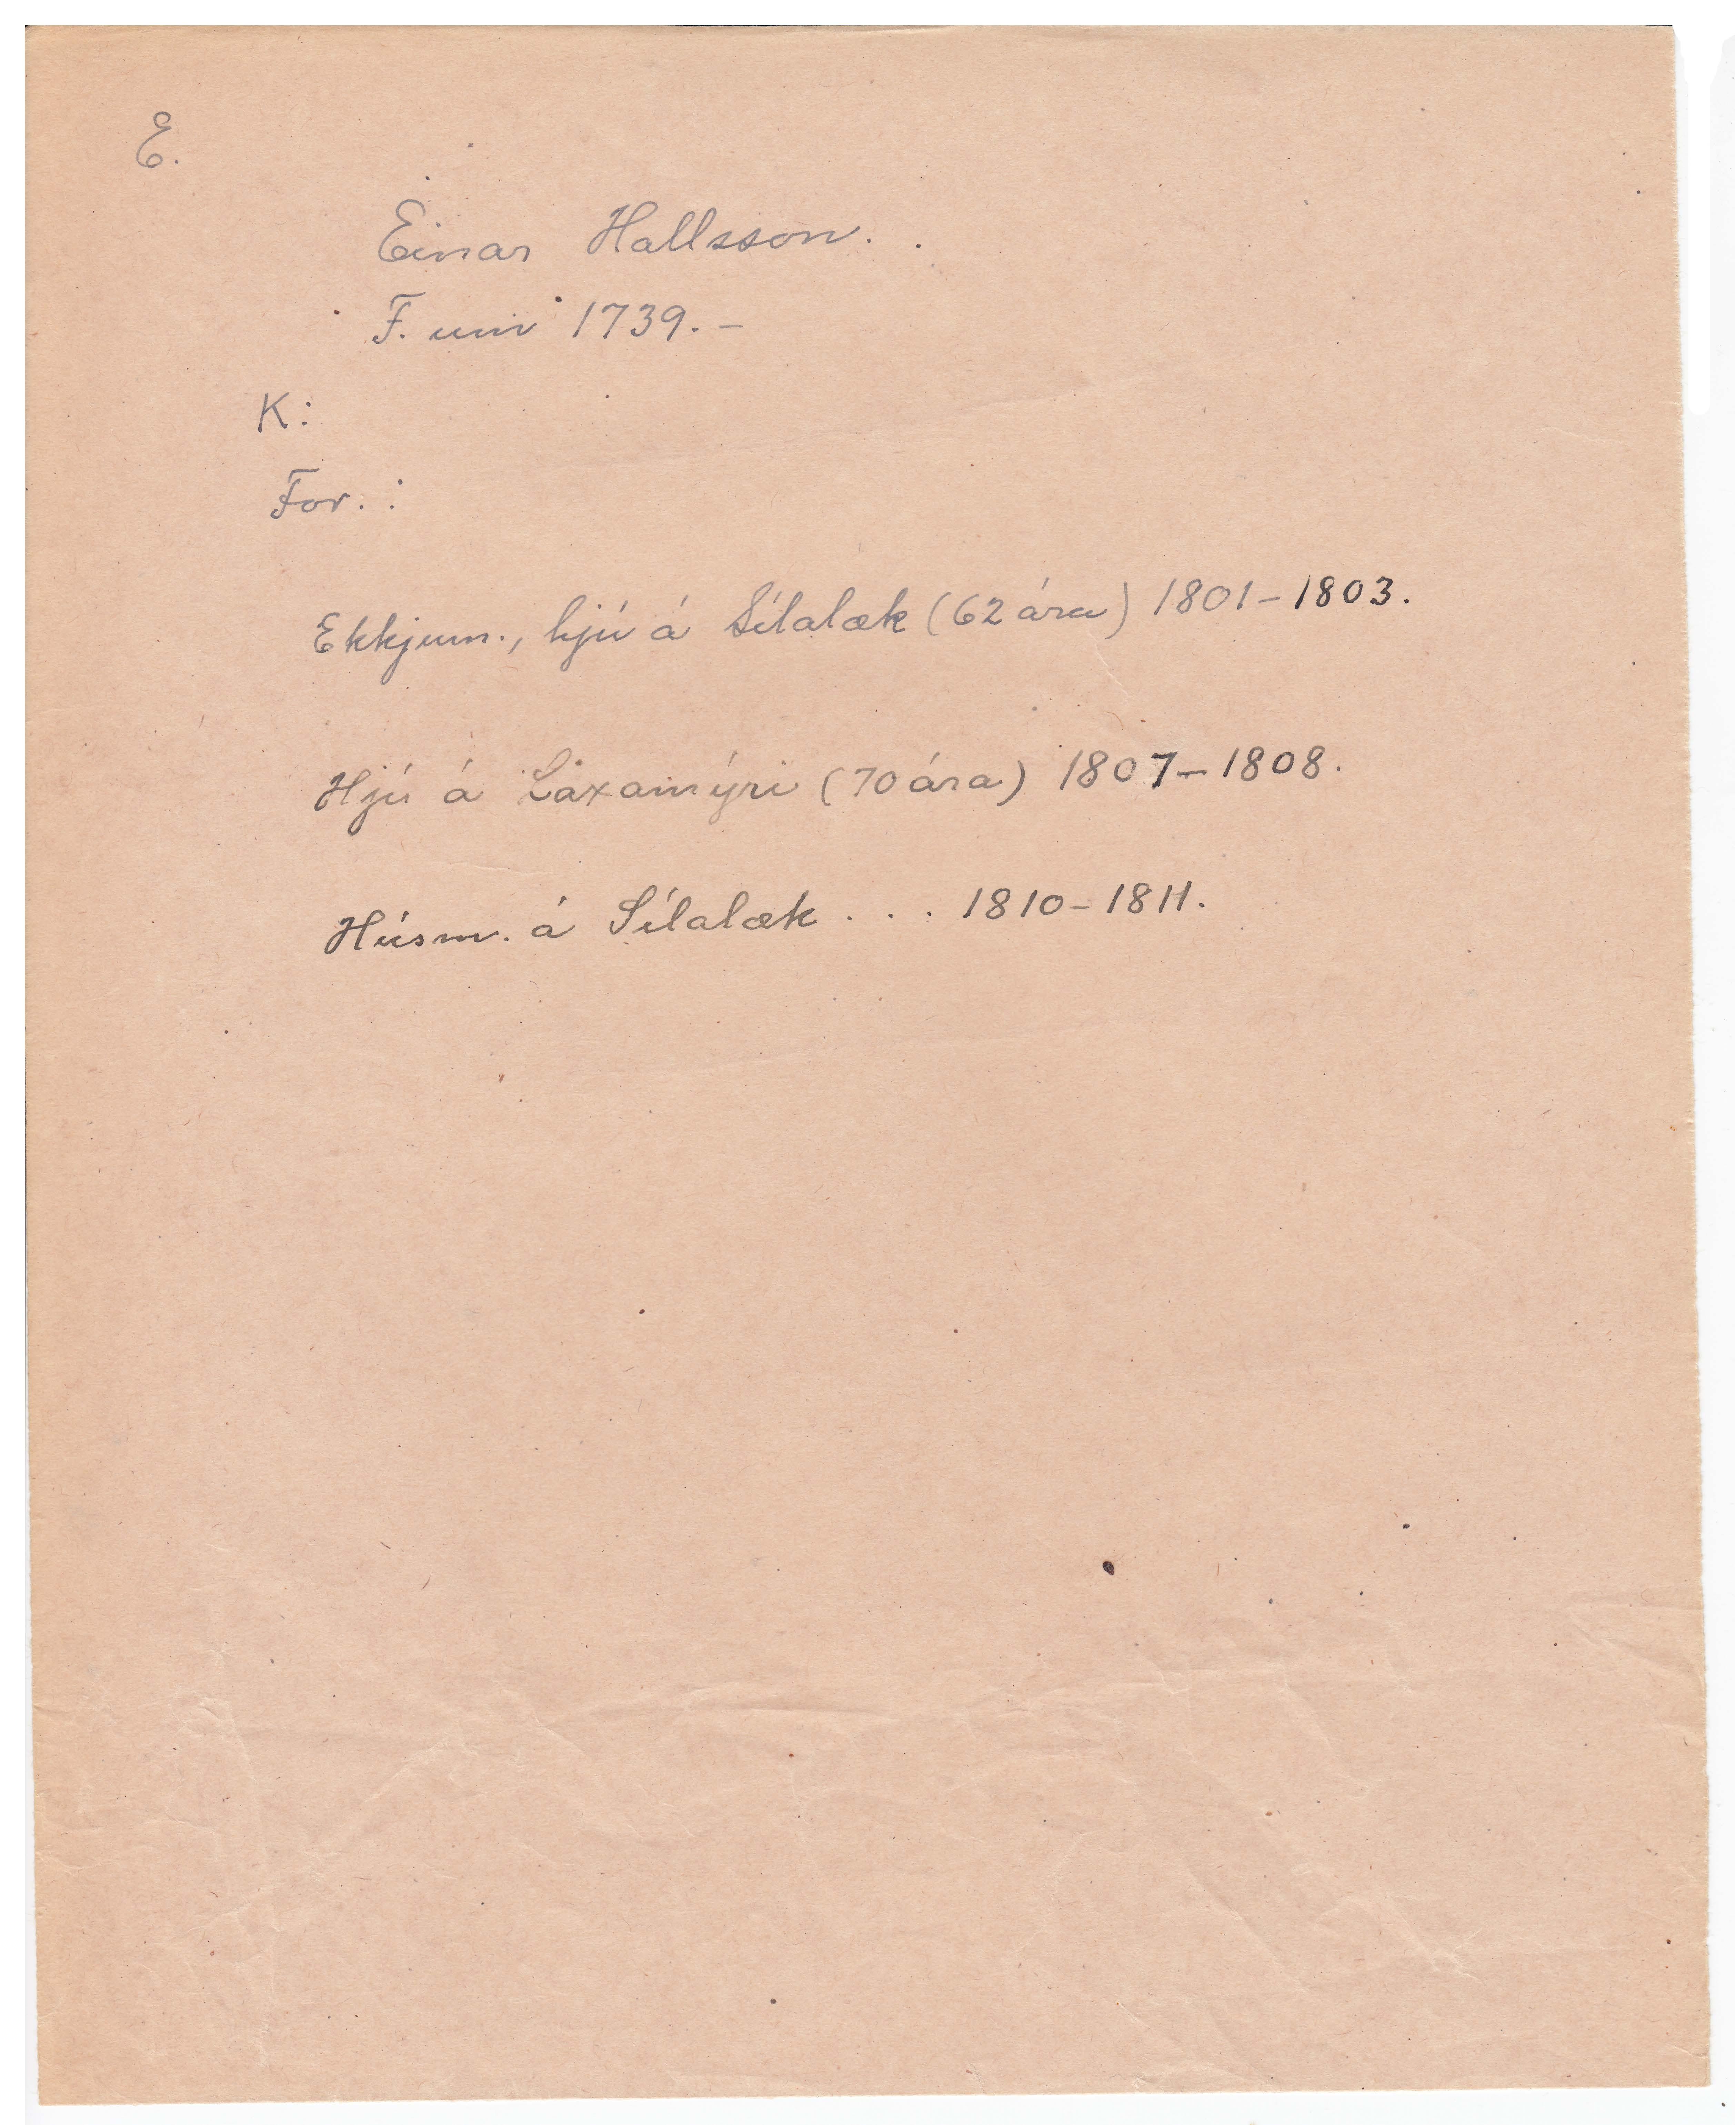 E.
Einar Hallsson.
F. um 1739. -
K:
For. :
Ekkjum., hjú á Sílalæk (62 ára) 1801-1803.
Hjú á Laxamýri (70 ára) 1807-1808.
Húsm. á Sílalæk . . . 1810-1811.